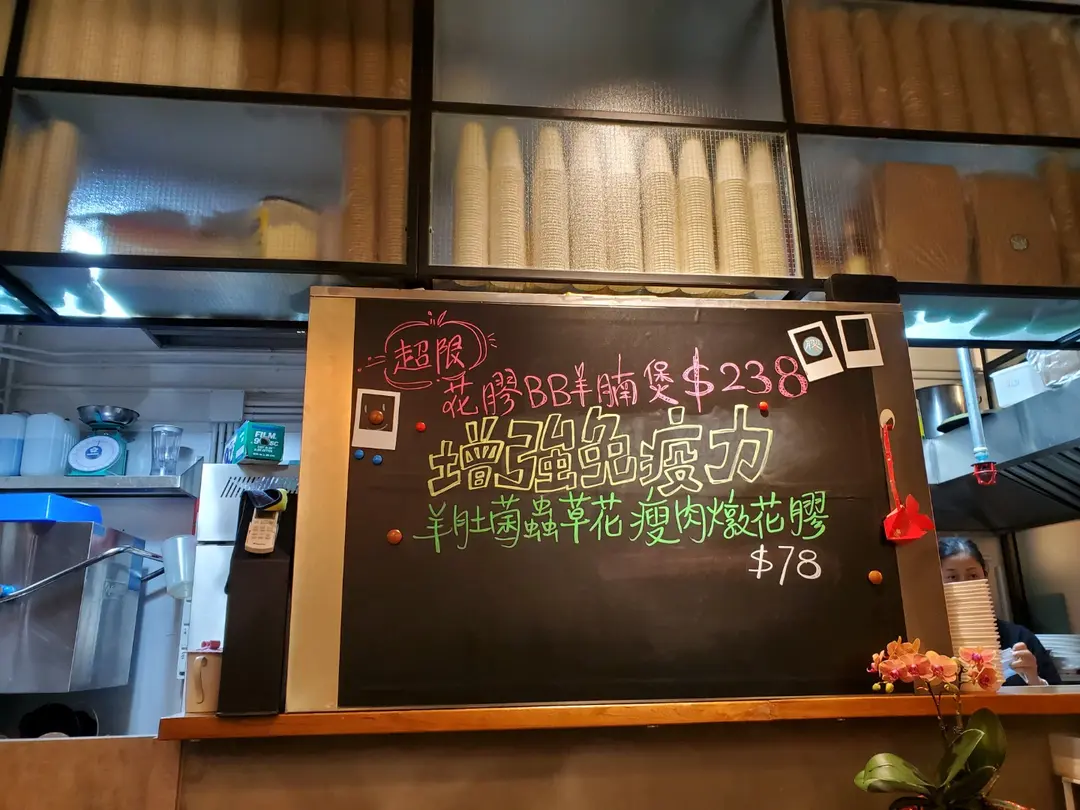 超限
花膠BB羊腩煲$238
增強免疫力
羊肚菌蟲草花瘦肉燉花膠
$78
FILM